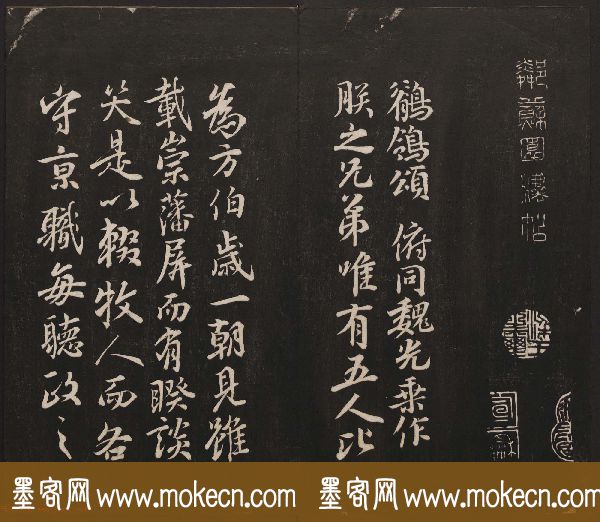 鄰蘇園法帖
鶺鴒頌 俯同魏光乘作
朕之兄弟唯有五人比
為方伯歲一朝見雖
載崇藩屏而有睽談
笑是以輟牧人而各
守京職每聽政之
墨客网 www.mokecn.com 墨客网 www.mokecn.com